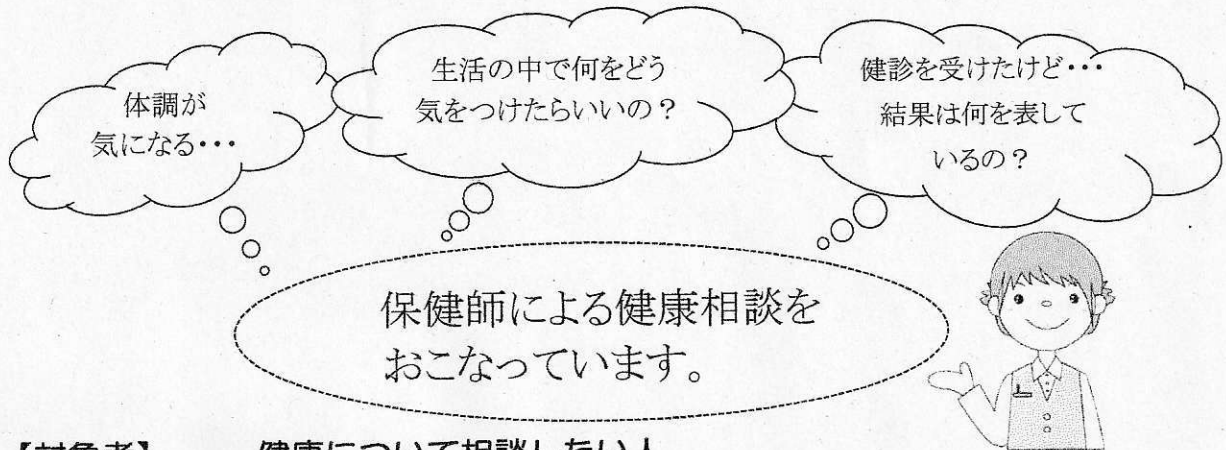 体調が
気になる・・・
生活の中で何をどう
気をつけたらいいの？
健診を受けたけど・・・
結果は何を表して
いるの？
保健師による健康相談を
おこなっています。
【対象者】 健康について相談したい人